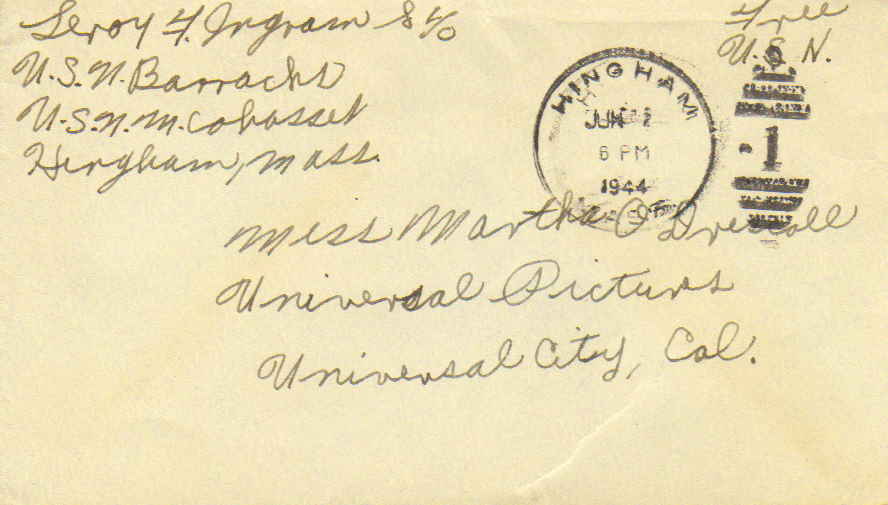 Leroy F. Ingram S 1/c
U.S.N. Barracks
U.S.N.M. Cohasset
Hingham, Mass.
Free
U.S.N.
HINGHAM
JUN 2
6 PM
1944
MASS.
1
Miss Martha O'Driscoll
Universal Picturs
Universal City, Cal.